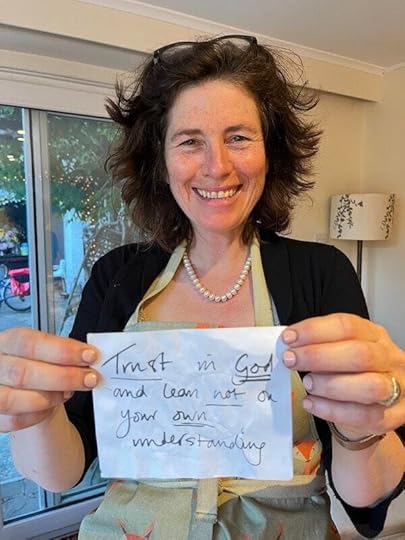 Trust in God
and lean not on
your own
understanding